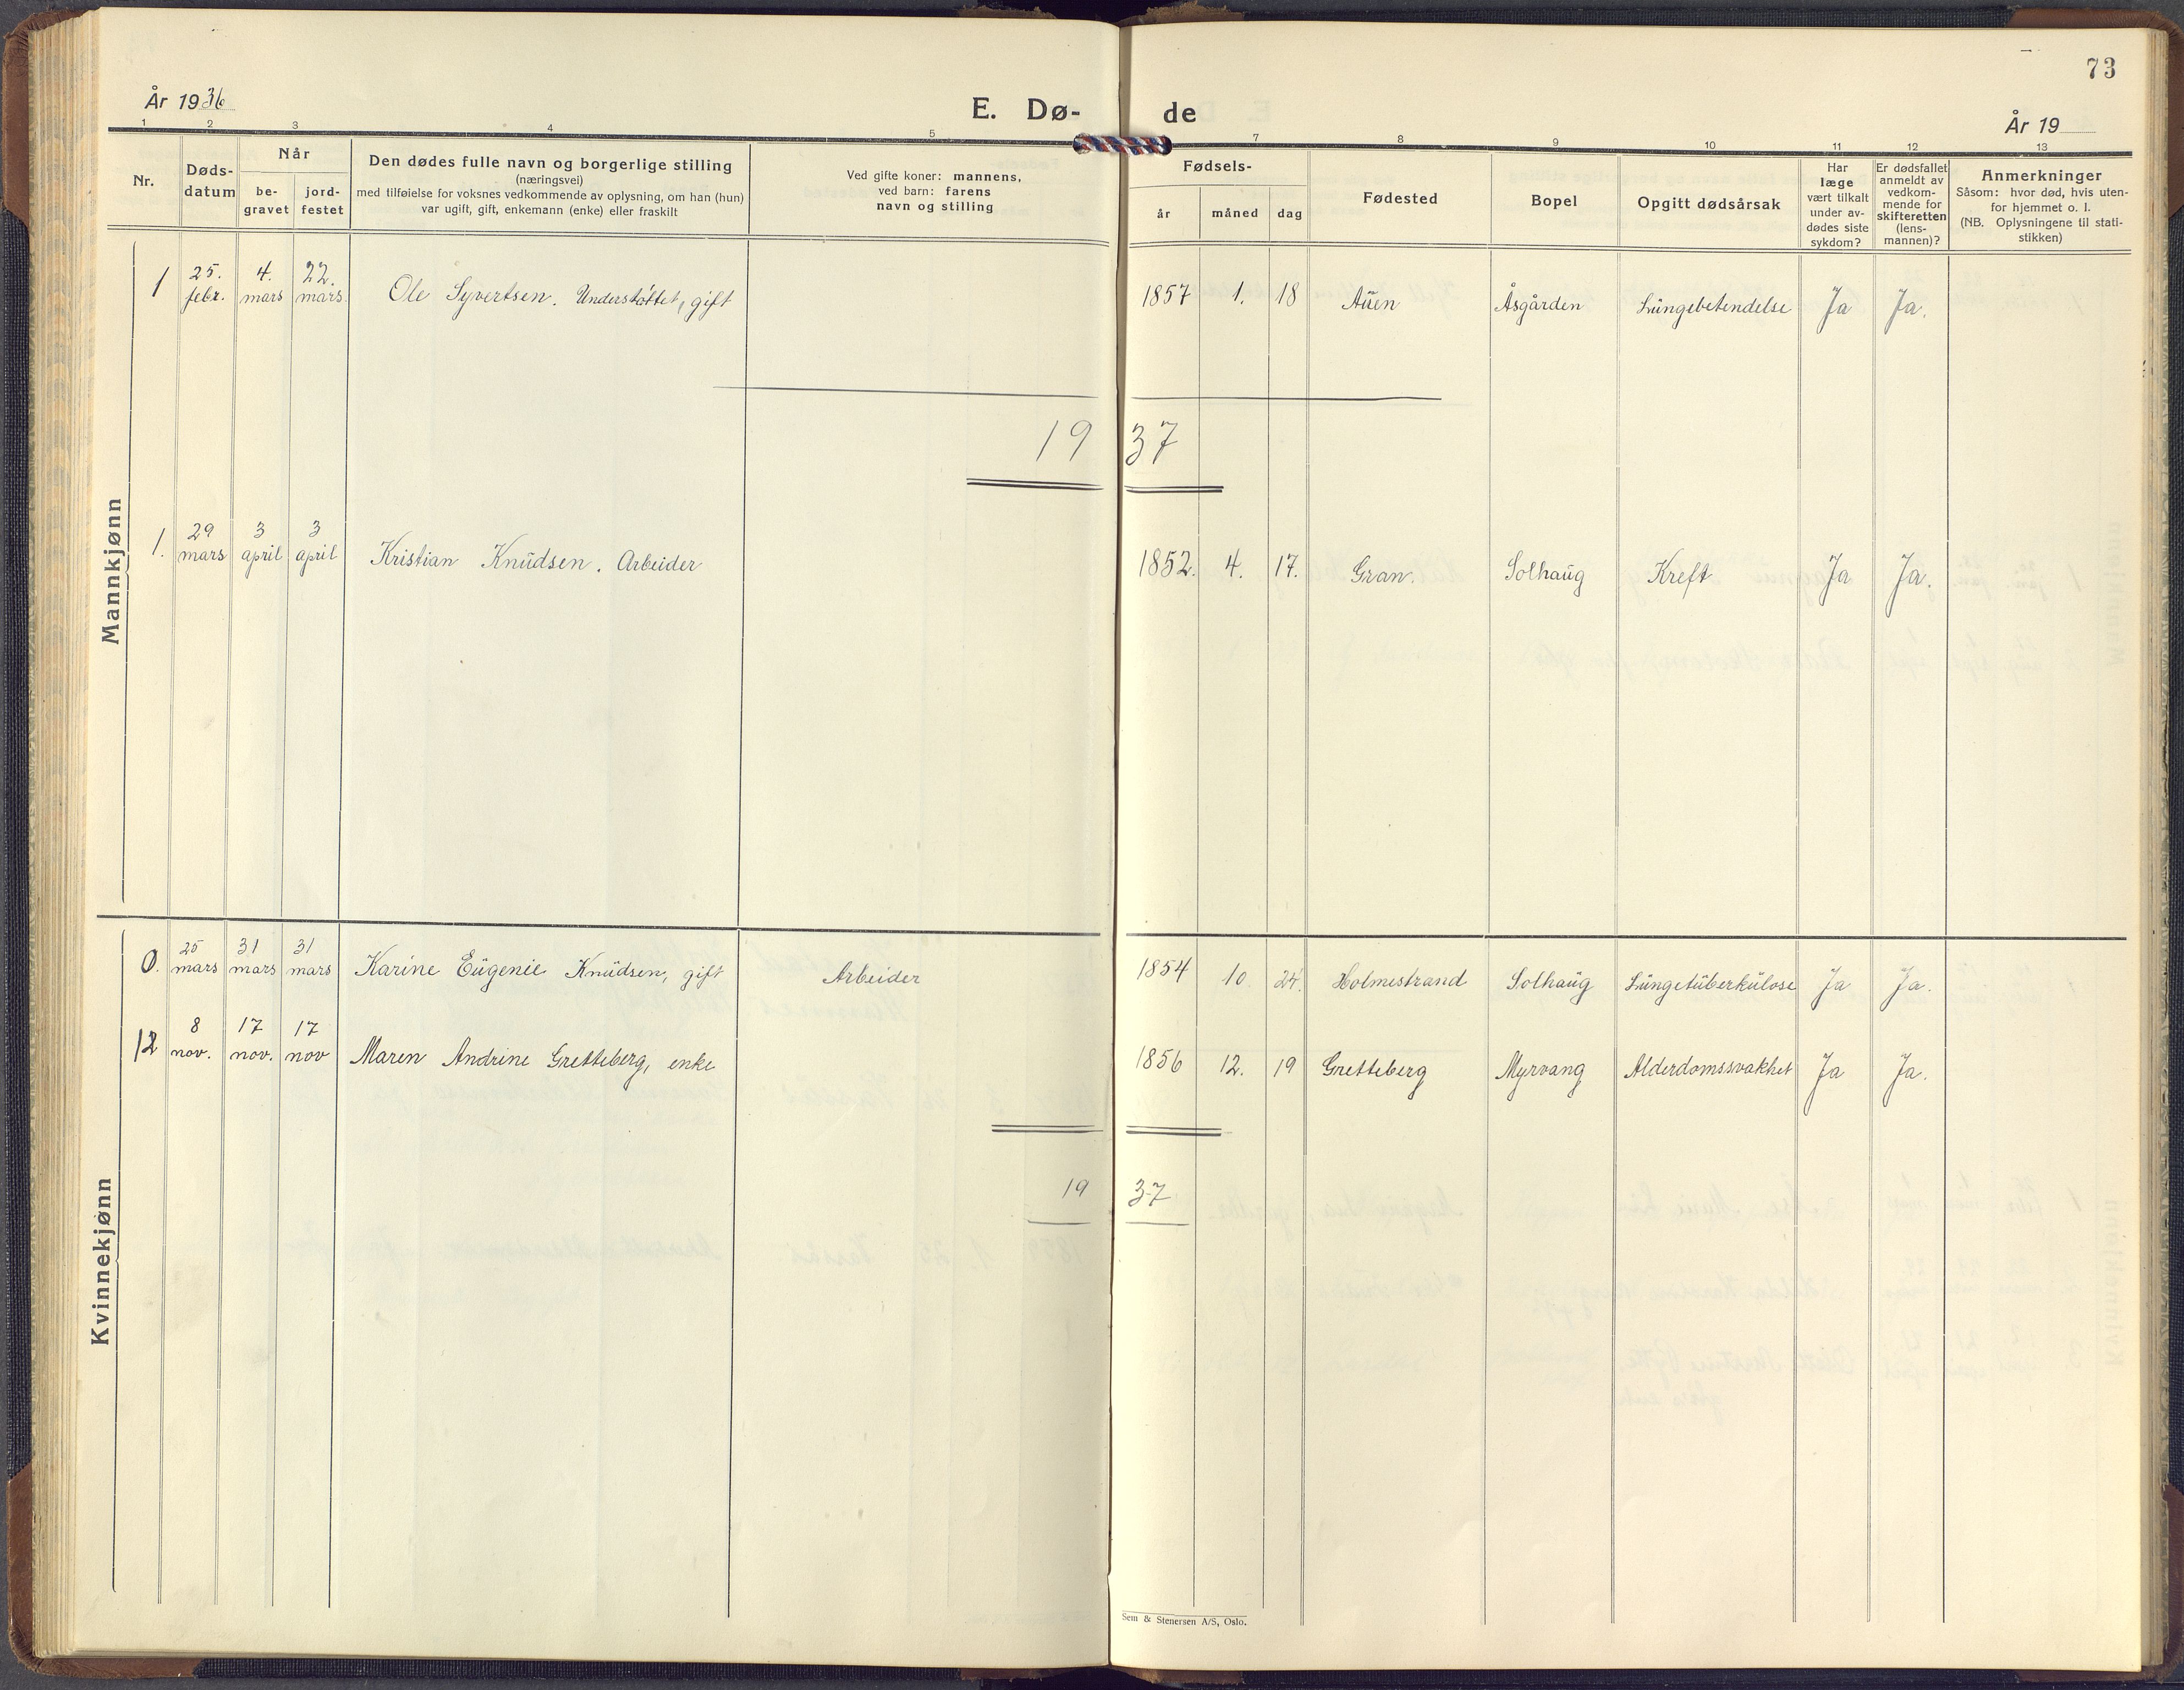 73
År 1936
E. Dø-
de
År 19
1 2 3 4 5 7 8 9 10 11 12 13
Nr.
Døds-
datum
Når
be-
gravet
jord-
festet
Den dødes fulle navn og borgerlige stilling
(næringsvei)
med tilføielse for voksnes vedkommende av oplysning, om han (hun)
var ugift, gift, enkemann (enke) eller fraskilt
Ved gifte koner: mannens,
ved barn: farens
navn og stilling
Fødsels-
år
måned
dag
Fødested
Bopel
Opgitt dødsårsak
Har
læge
vært tilkalt
under av-
dødes siste
sykdom?
Er dødsfallet
anmeldt av
vedkom-
mende for
skifteretten
(lens-
mannen)?
Anmerkninger
Såsom: hvor død, hvis uten-
for hjemmet o. l.
(NB. Oplysningene til stati-
stikken)
Mannkjønn
1 25. febr. 4. mars 22. mars. Ole Syvertsen. Understøttet, gift 1857 1. 18 Auen Åsgården Lungebetendelse Ja Ja.
19 37
1. 29 mars 3 april 3 april Kristian Knudsen. Arbeider 1852. 4. 17. Gran. Solhaug Kreft Ja Ja.
Kvinnekjønn
0. 25 mars 31 mars 31 mars Karine Eugenie Knudsen, gift Arbeider 1854 10. 24. Holmestrand Solhaug Lungetuberkulose Ja Ja.
12 8 nov. 17 nov. 17 nov Maren Andrine Gretteberg, enke 1856 12. 19 Gretteberg Myrvang Alderdomssvakhet Ja Ja.
19 37
Sem & Stenersen A/S, Oslo.